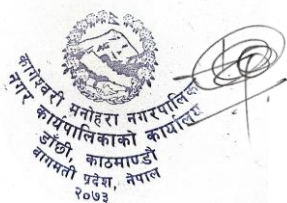 कागेश्वरी मनोहरा नगरपालिका
नगर कार्यपालिकाको कार्यालय
डाँछी, काठमाण्डौ
बागमती प्रदेश, नेपाल
२०७३